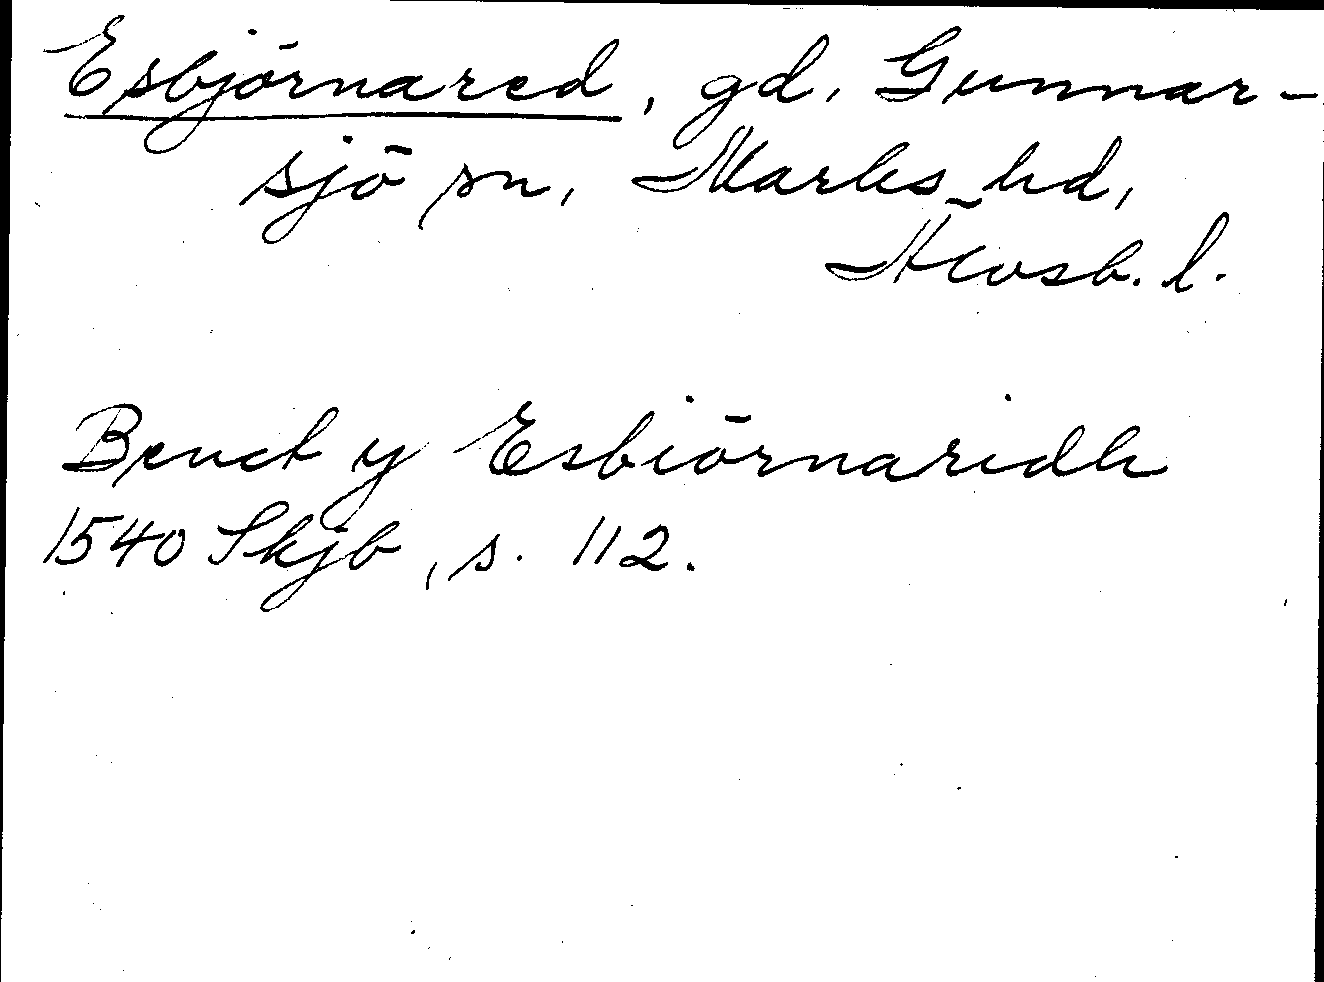 Esbjörnared, gd, Gunnar-
sjö sn, Marks hd,
Älvsb. l.
Benct y Esbiörnaridh
1540 Skjb, s. 112.